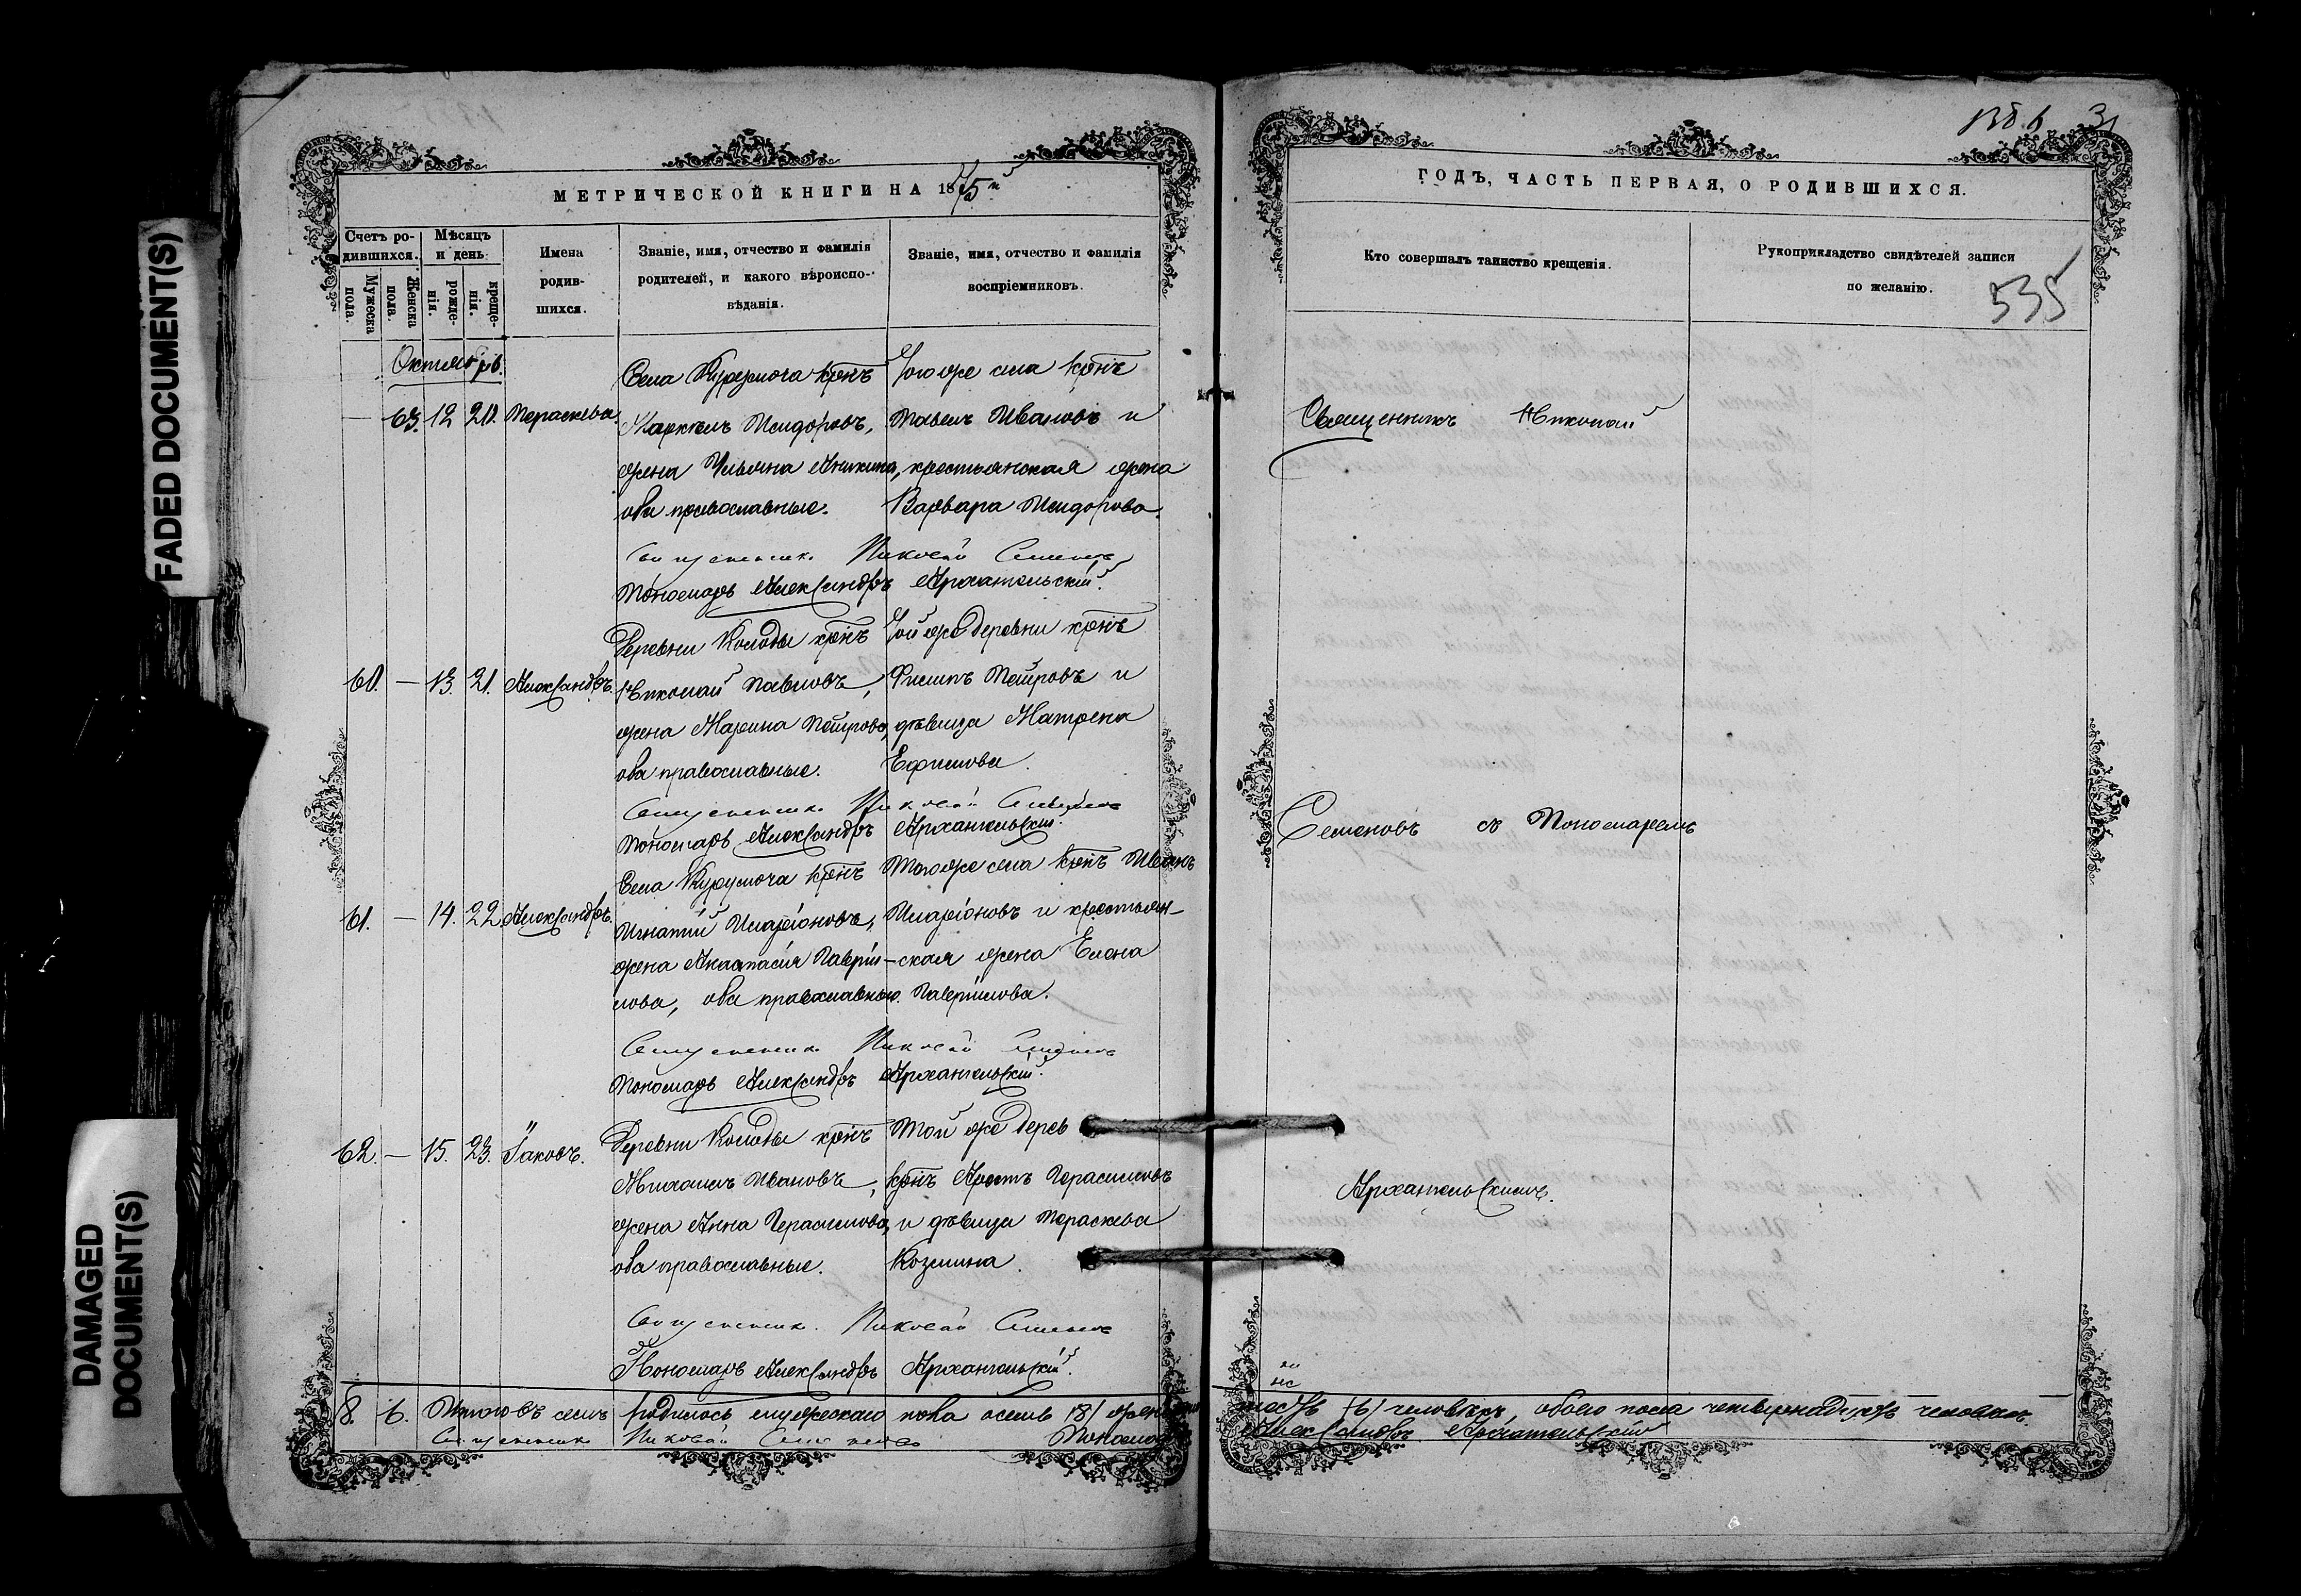 FADED DOCUMENT(S)
DAMAGED
DOCUMENT(S)
МЕТРИЧЕСКОЙ КНИГИ НА 1875й
Счетъ ро-
дившихся.
Мѣсяцъ
и день
Мужеска
пола.
Женска
пола.
рожде-
нія.
креще-
нія.
Имена
родив-
шихся.
Званіе, имя, отчество и фамилія
родителей, и какого вѣроиспо-
вѣданія.
Званіе, имя, отчество и фамилія
воспріемниковъ.
Октябрь.
Села Курумоча крнъ
Тогоже села крнъ
— 63. 12 20. Параскева
Маркелъ Исидоровъ,
Павелъ Ивановъ и
жена Ульяна Аникина,
крестьянская жена
оба православные.
Варвара Исидорова.
Священникъ Николай Семеновъ
Пономарь Александръ Архангельскій.
Деревни Колоды крнъ
Той же деревни крнъ
60. — 13. 21. Александръ.
Николай Павловъ,
Филипъ Петровъ и
жена Марина Петрова,
дѣвица Матрена
оба православные.
Ефимова.
Священникъ Николай Семеновъ
Пономарь Александръ Архангельскій.
Села Курумоча крнъ
Тогоже села крнъ Иванъ
61. — 14. 22. Александръ.
Игнатій Иларіоновъ,
Иларіоновъ и крестьян-
жена Анастасія Гаврии-
ская жена Елена
лова, оба православные.
Гавриилова.
Священникъ Николай Семеновъ
Пономарь Александръ Архангельскій.
Деревни Колоды крнъ
Той же дерев
62. — 15. 23. Іаковъ.
Михаилъ Ивановъ,
крнъ Герасимовъ
жена Анна Герасимова,
и дѣвица Параскева
оба православные.
Козмина.
Священникъ Николай Семеновъ
Пономарь Александръ Архангельскій.
8. 6. Итого въ семъ родилось мужескаго пола осмь /8/
Священникъ Николай Семеновъ
ГОДЪ, ЧАСТЬ ПЕРВАЯ, О РОДИВШИХСЯ.
Кто совершалъ таинство крещенія.
Рукоприкладство свидѣтелей записи
по желанію.
535
Священникъ Николай
Семеновъ съ Пономаремъ
Архангельскимъ.
шесть /6/ человѣкъ, обоего пола четырнадцать человѣкъ.
Александръ Архангельскій